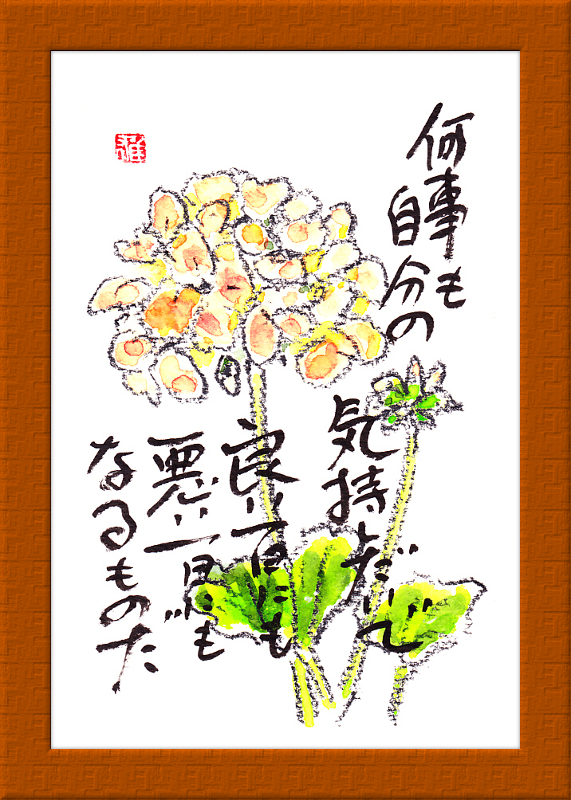 何事も
自分の
気持しだいで
良い一日にも
悪い一日にも
なるものだ
雅